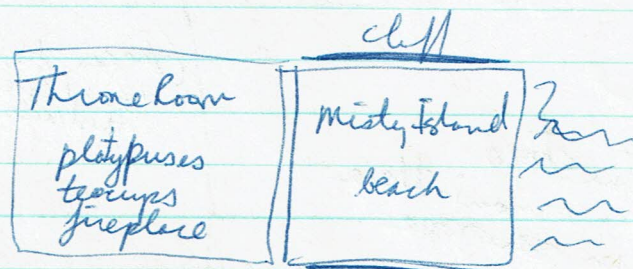 cliff
Throne Room
platypuses
teacups
fireplace
Misty Island
beach